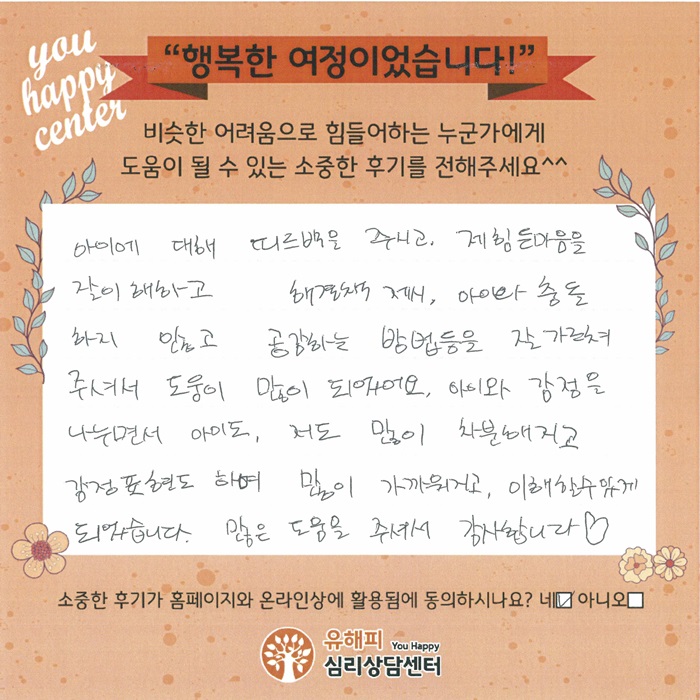 you
happy
center
“행복한 여정이었습니다!”
비슷한 어려움으로 힘들어하는 누군가에게
도움이 될 수 있는 소중한 후기를 전해주세요^^
아이에 대해 피드백을 주시고, 제힘든마음을
잘이해하고 해결책 제시, 아이와 충돌
하지 않고 공감하는 방법등을 잘가르쳐
주셔서 도움이 많이 되었어요, 아이와 감정을
나누면서 아이도, 저도 많이 차분해지고
감정표현도 하며 많이 가까워지고, 이해할수있게
되었습니다. 많은 도움을 주셔서 감사합니다♡
소중한 후기가 홈페이지와 온라인상에 활용됨에 동의하시나요? 네☑ 아니오□
유해피 You Happy
심리상담센터